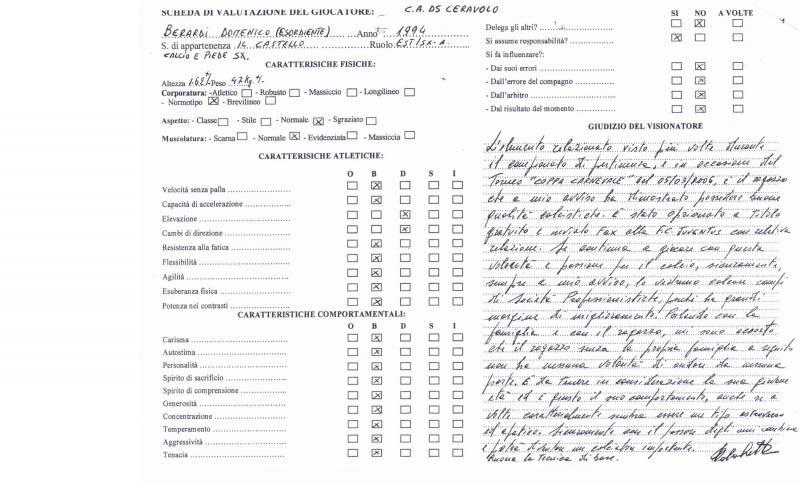 SCHEDA DI VALUTAZIONE DEL GIOCATORE: C.A. DS CERAVOLO
BERARDI DOMENICO (ESORDIENTE) Anno 1994
S. di appartenenza IL CASTELLO Ruolo EST/SX-A.
CALCIO E PIEDE SX.
CARATTERISICHE FISICHE:
Altezza 1.62 Peso 47 Kg.
Corporatura: -Atletico - Robusto - Massiccio - Longilineo
- Normotipo - Brevilineo
Aspetto: - Classe - Stile - Normale - Sgraziato
Muscolatura: - Scarna - Normale - Evidenziata - Massiccia
CARATTERISICHE ATLETICHE:
O B D S I
Velocità senza palla
Capacità di accelerazione
Elevazione
Cambi di direzione
Resistenza alla fatica
Flessibilità
Agilità
Esuberanza fisica
Potenza nei contrasti
CARATTERISTICHE COMPORTAMENTALI:
O B D S I
Carisma
Autostima
Personalità
Spirito di sacrificio
Spirito di comprensione
Generosità
Concentrazione
Temperamento
Aggressività
Tenacia
SI NO A VOLTE
Delega gli altri?
Si assume responsabilità?
Si fa influenzare?
- Dai suoi errori
- Dall'errore del compagno
- Dall'arbitro
- Dal risultato del momento
GIUDIZIO DEL VISIONATORE
L'elemento relazionato visto più volte durante
il campionato di pertinenza, e in occasione del
Torneo "COPPA CARNEVALE" del 05/03/2006, è il ragazzo
che a mio avviso ha dimostrato possedere buone
qualità calcistiche. È stato opzionato a titolo
gratuito e inviato Fax alla F.C. Juventus con relativa
relazione. Se continua a giocare con questa
volontà e passione per il calcio, sicuramente,
sempre a mio avviso, lo vedremo calcare campi
di Società Professionistiche, perché ha grandi
margine di miglioramento. Parlando con la
famiglia e con il ragazzo, mi sono accorto
che il ragazzo senza la propria famiglia a seguito
non ha nessuna volontà di andare da nessuna
parte. È da tenere in considerazione la sua giovane
età ed è giusto il suo comportamento, anche se a
volte caratterialmente sembra essere un tipo
ed apatico. Sicuramente con il passare degli anni
e potrà diventare un calciatore importante.
Buona la tecnica di base.